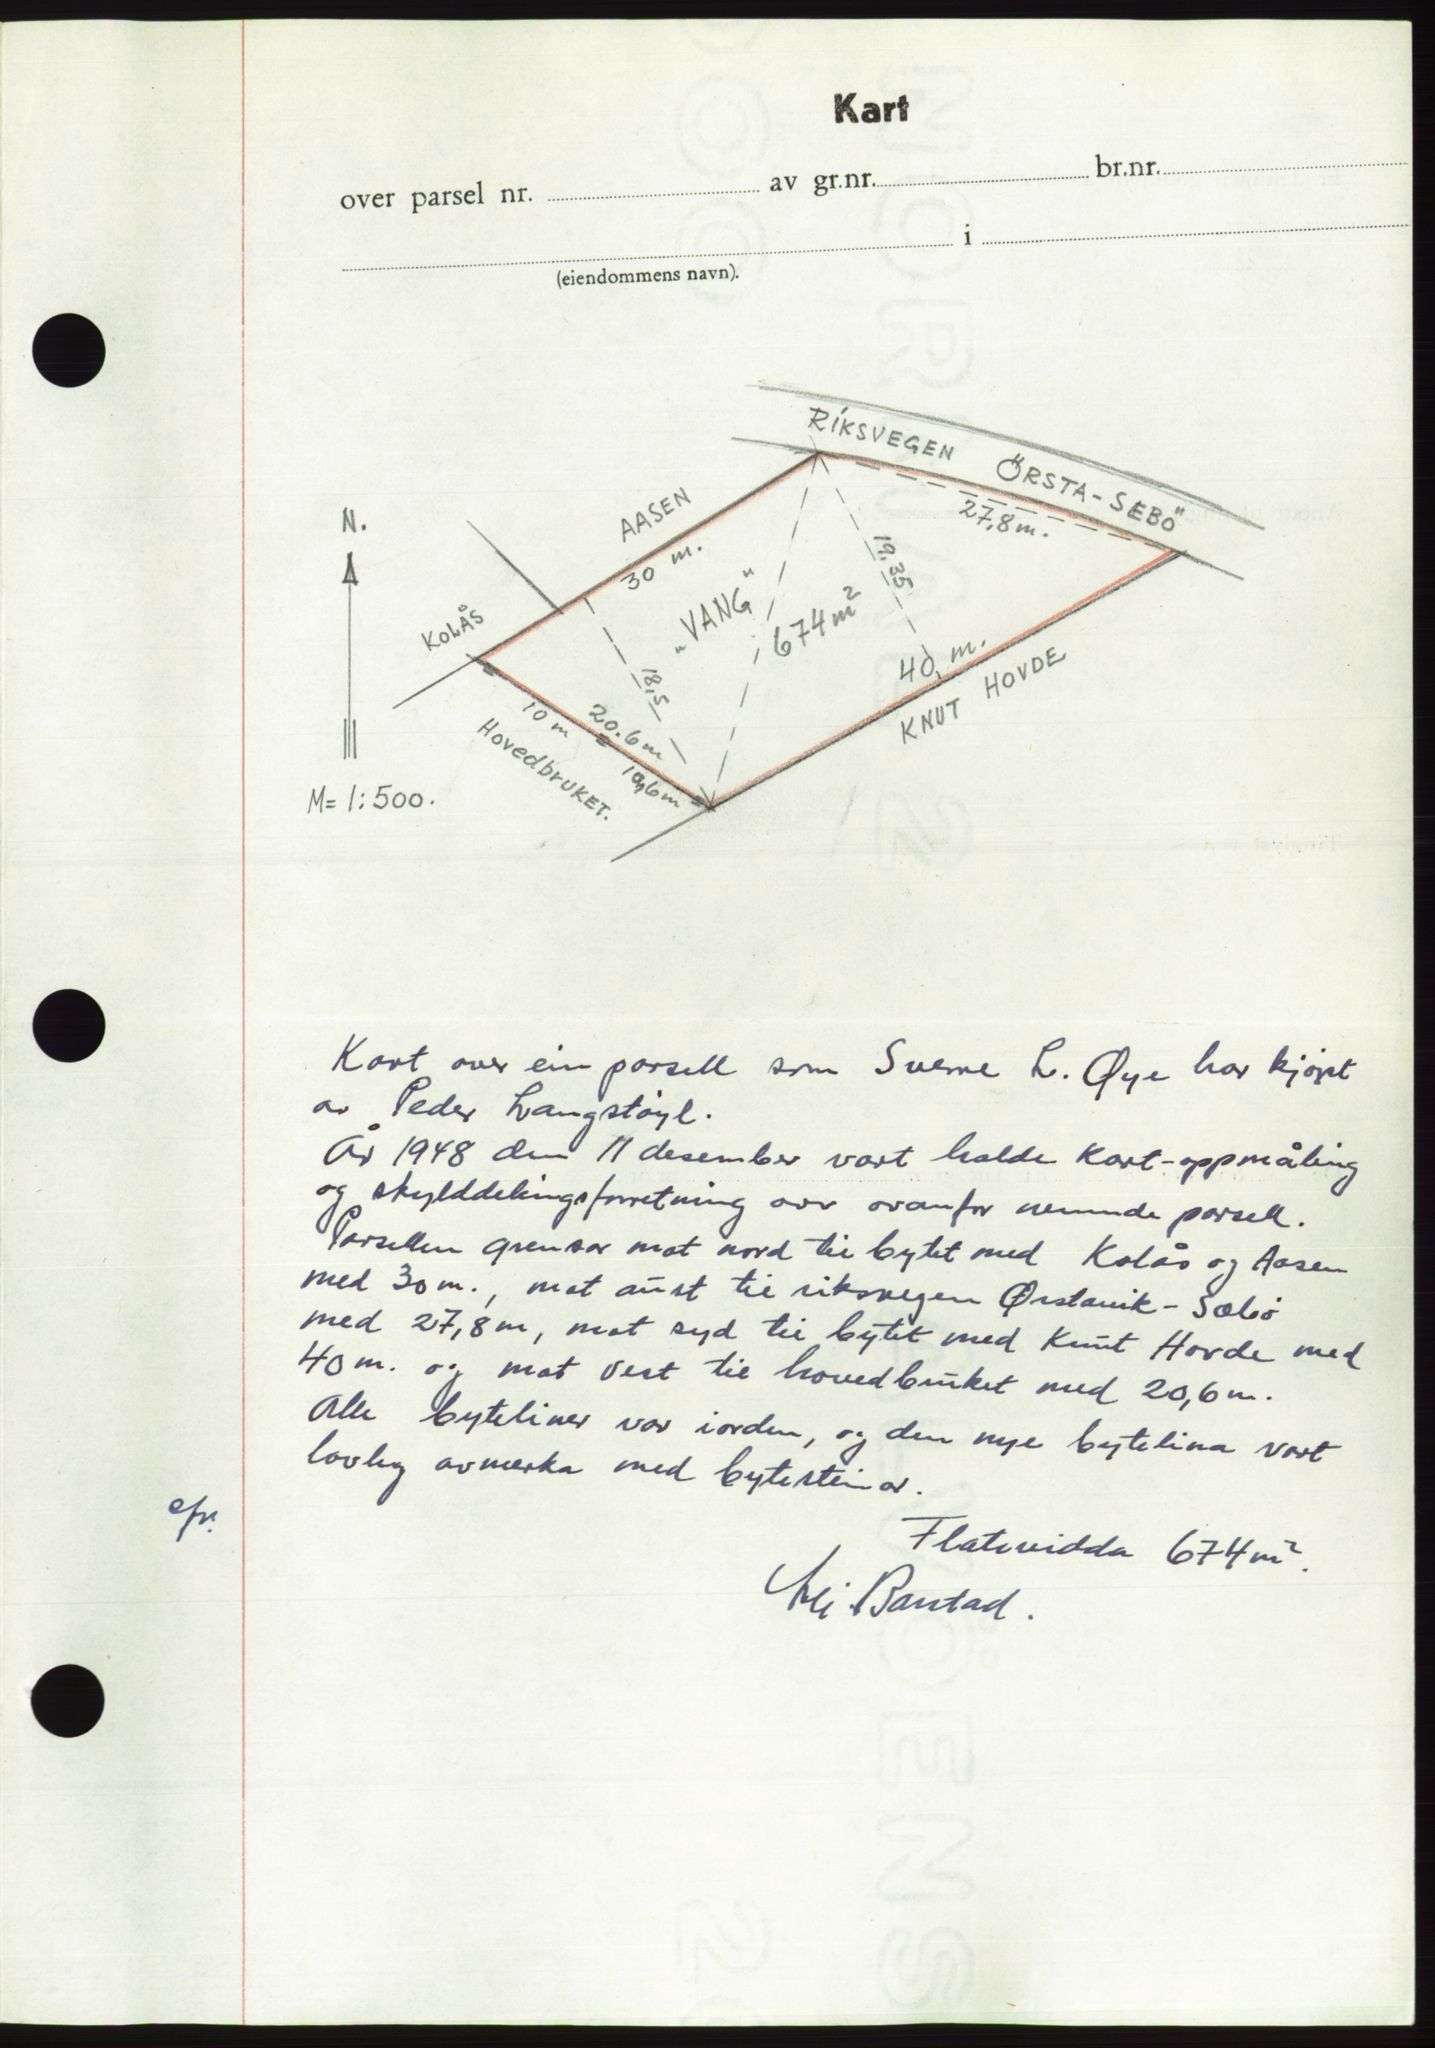 Kart
over parsel nr. av gr.nr. br.nr.
i
(eiendommens navn).
RIKSVEGEN ÖRSTA-SÆBÖ
27,8 m.
N.
AASEN
30 m.
19.35
KOLÅS
„VANG"
674 m²
18,5
40, m.
KNUT HOVDE
10 m
20.6 m
10,6 m
HovedbruKET.
M= 1:500.
Kart over ein parsell som Sverre L. Øye har kjøpt
av Peder Langstøyl.
År 1948 den 11 desember vart halde Kart-oppmåling
og skylddelingsforretning over ovanfor nemnde parsell.
Parsellen grensar mot nord til bytet med Kolås og Aasen
med 30 m., mot aust til riksvegen Ørstavik - Sæbø
med 27,8 m, mot syd til bytet med Knut Hovde med
40 m. og mot vest til hovedbruket med 20,6 m.
Alle byteliner var iorden, og den nye bytelina vart
lovleg avmerka med bytesteinar.
Flatevidda 674 m².
Barstad.